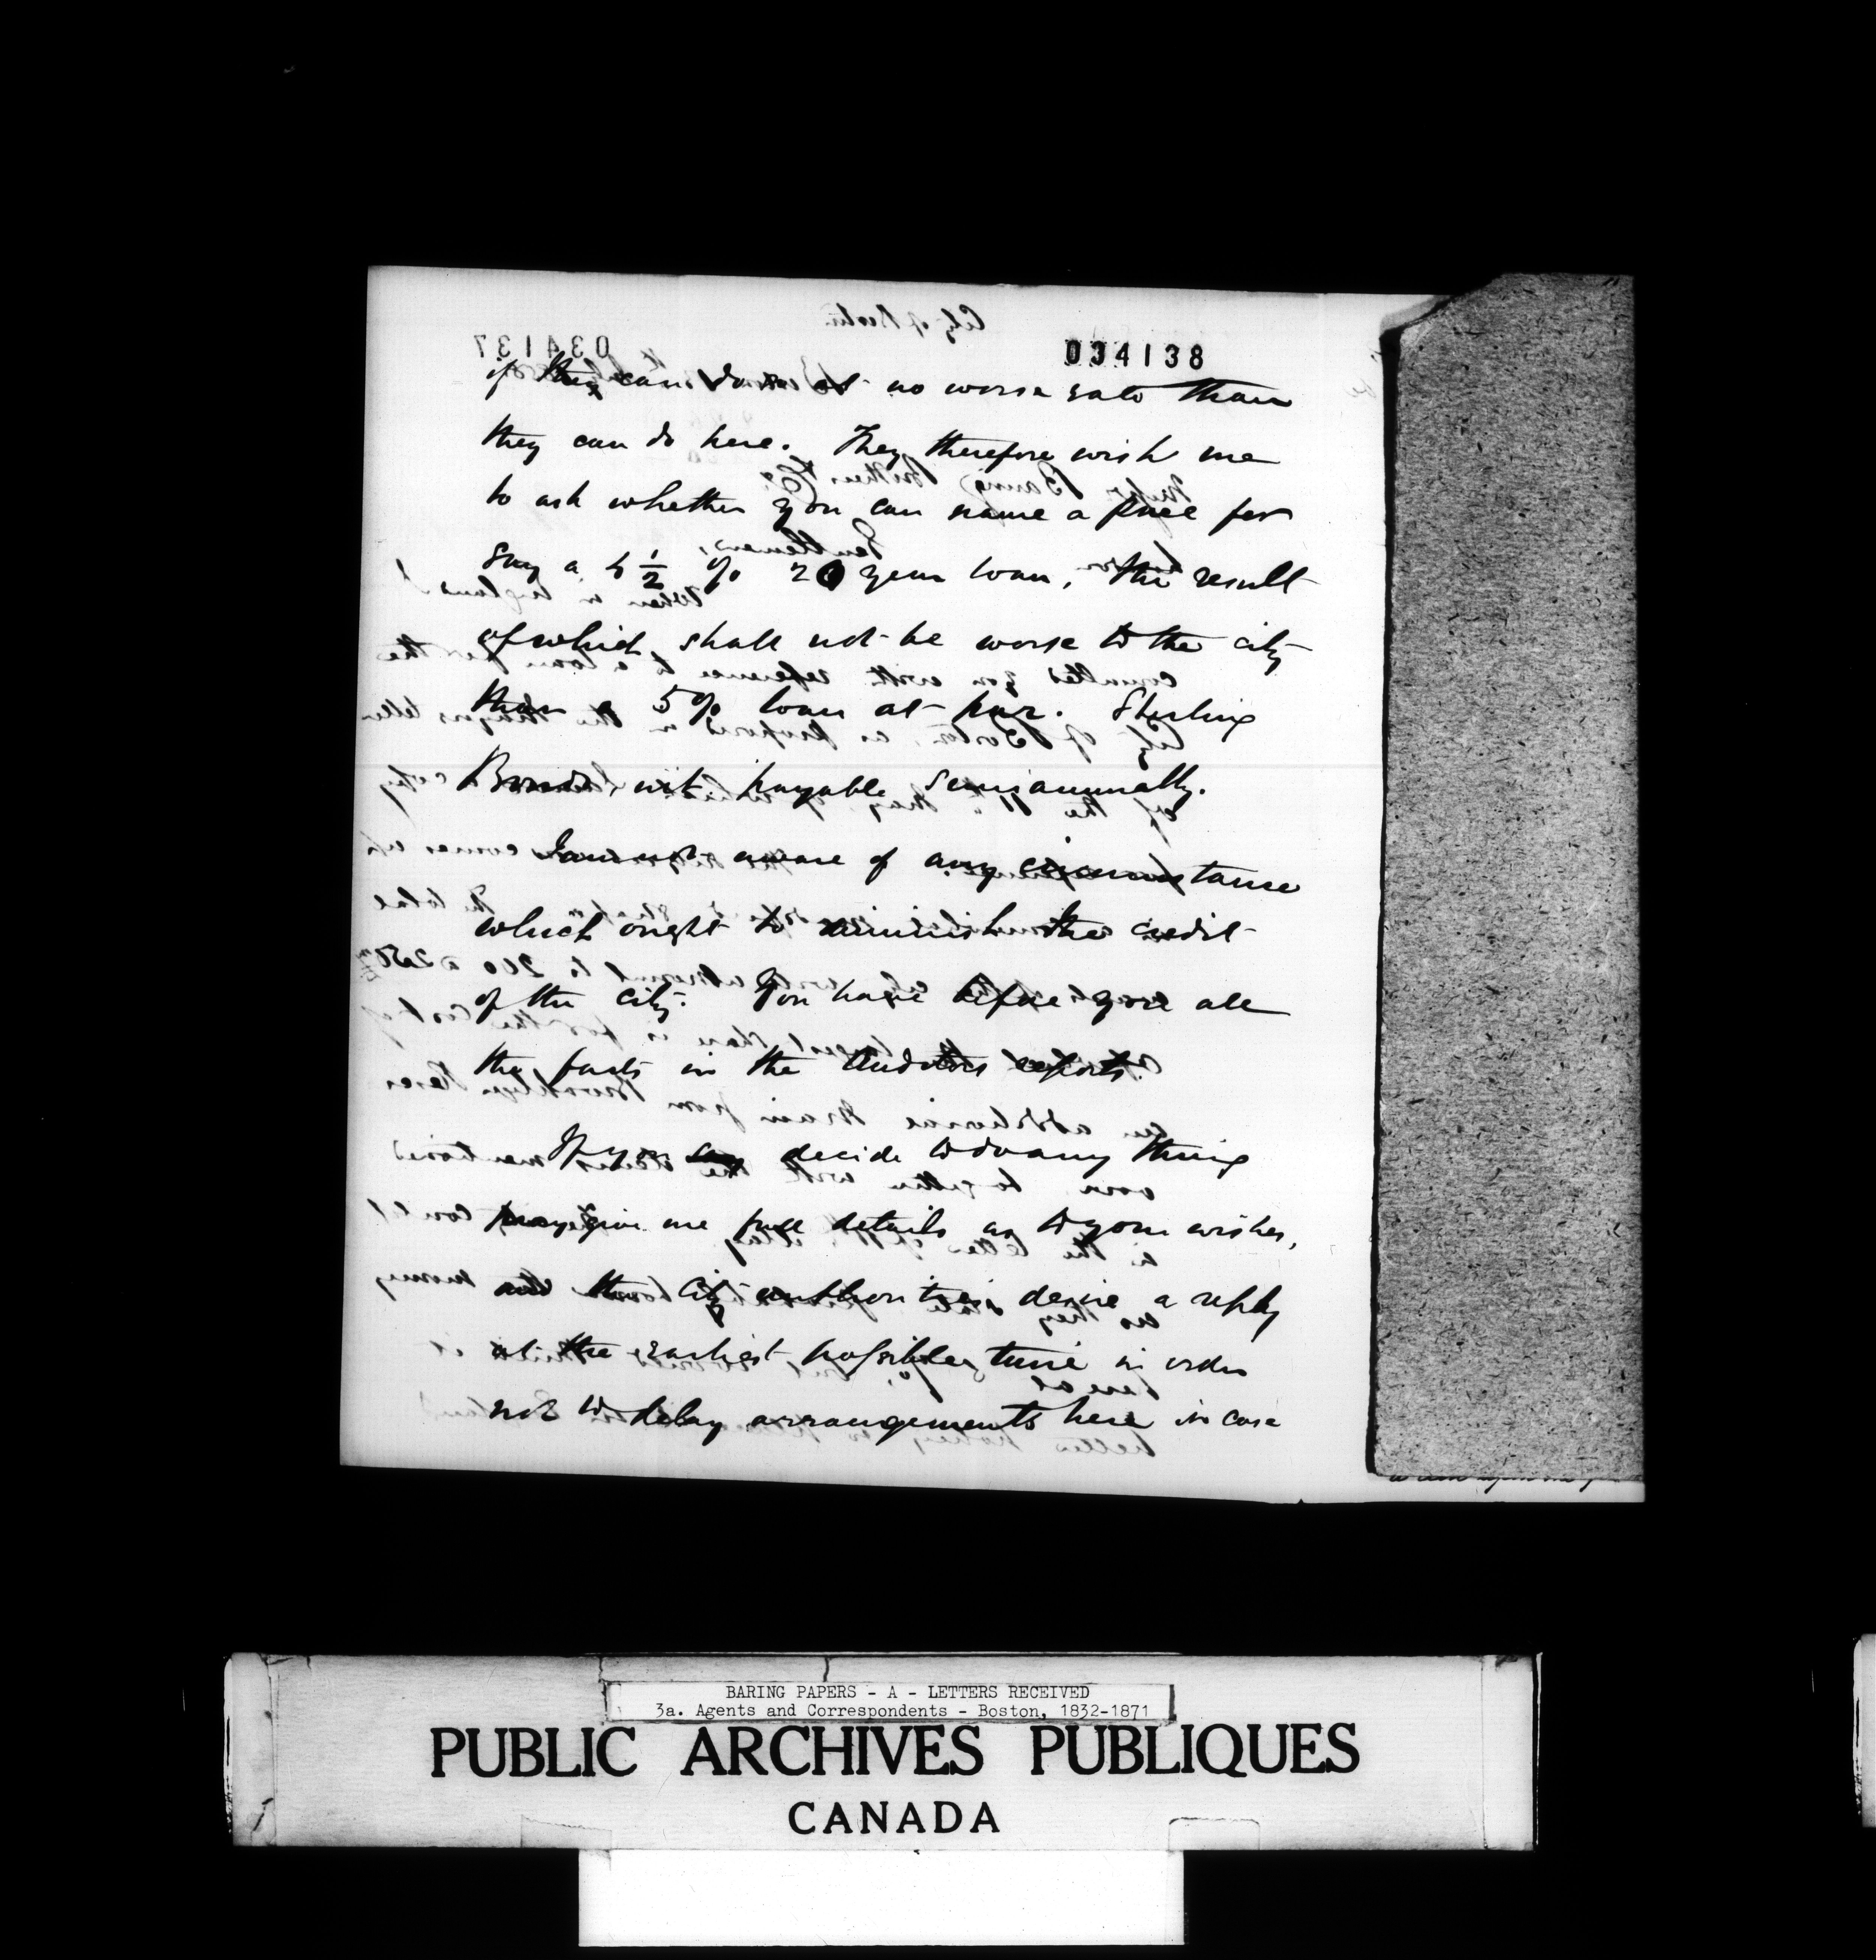 034138
if they can do so at no worse rate than
they can do here. They therefore wish me
to ask whether you can name a price for
say a 4 1/2 % 20 year loan, the result
of which shall not be worse to the city
than a 5% loan at par. Sterling
Bonds, int payable semiannually.
I am not aware of any circumstance
which ought to diminish the credit
of the city. You have before you all
the facts in the Auditors reports.
If you decide to do any thing
pray give me full details as to your wishes,
and the city authorities desire a reply
at the earliest possible time in order
not to delay arrangements here in case
BARING PAPERS - A - LETTERS RECEIVED
3a. Agents and Correspondents - Boston, 1832-1871
PUBLIC ARCHIVES PUBLIQUES
CANADA